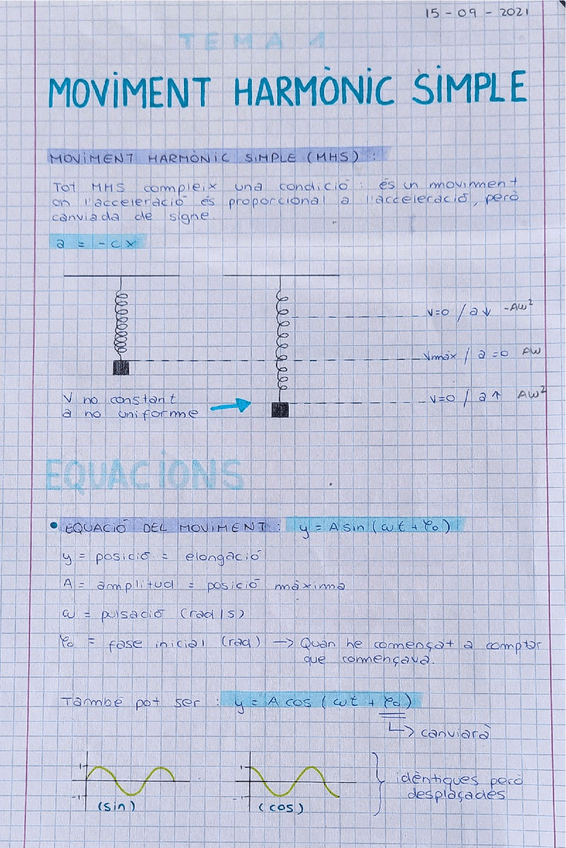 15-09-2021
TEMA 1
MOVIMENT HARMÒNIC SIMPLE
MOVIMENT HARMÒNIC SIMPLE (MHS) :
Tot MHS compleix una condició : és un moviment
on l'acceleració és proporcional a l'acceleració, però
canviada de signe.
a = -cx
v=0 / a↓ -Aω²
Vmàx / a=0 Aω
V no constant
a no uniforme
v=0 / a↑ Aω²
EQUACIONS
• EQUACIÓ DEL MOVIMENT : y = A sin (ωt + φ₀)
y = posició = elongació
A = amplitud = posició màxima
ω = pulsació (rad/s)
φ₀ = fase inicial (rad) → Quan he començat a comptar
que començava.
També pot ser : y = A cos (ωt + φ₀)
↳ canviarà
1
-1
(sin)
1
-1
(cos)
idèntiques però
desplaçades